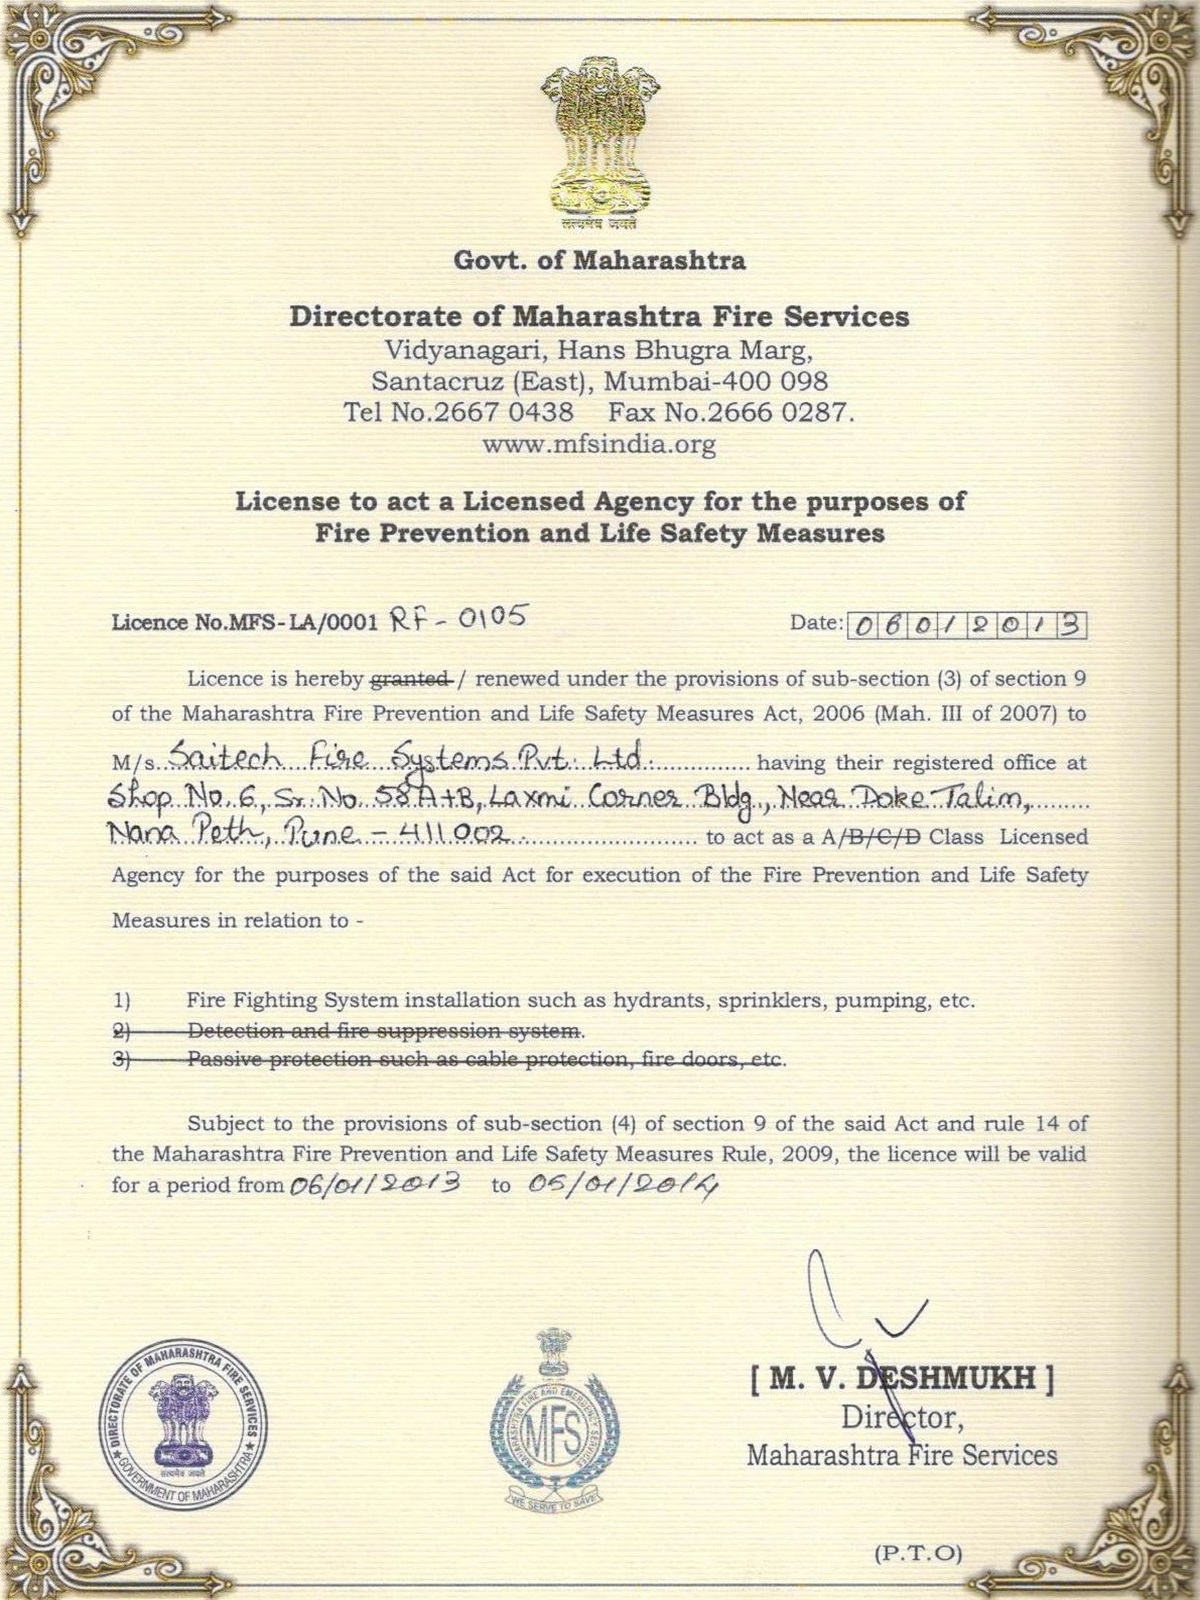 सत्यमेव जयते
Govt. of Maharashtra
Directorate of Maharashtra Fire Services
Vidyanagari, Hans Bhugra Marg,
Santacruz (East), Mumbai-400 098
Tel No.2667 0438 Fax No.2666 0287.
www.mfsindia.org
License to act a Licensed Agency for the purposes of
Fire Prevention and Life Safety Measures
Licence No.MFS-LA/0001 RF-0105 Date: 06012013
Licence is hereby granted / renewed under the provisions of sub-section (3) of section 9
of the Maharashtra Fire Prevention and Life Safety Measures Act, 2006 (Mah. III of 2007) to
M/s. Saitech Fire Systems Pvt. Ltd. having their registered office at
Shop No. 6, Sr. No. 58A+B, Laxmi Corner Bldg., Near Doke Talim,
Nana Peth, Pune - 411002. to act as a A/B/C/D Class Licensed
Agency for the purposes of the said Act for execution of the Fire Prevention and Life Safety
Measures in relation to -
1) Fire Fighting System installation such as hydrants, sprinklers, pumping, etc.
2) Detection and fire suppression system.
3) Passive protection such as cable protection, fire doors, etc.
Subject to the provisions of sub-section (4) of section 9 of the said Act and rule 14 of
the Maharashtra Fire Prevention and Life Safety Measures Rule, 2009, the licence will be valid
for a period from 06/01/2013 to 05/01/2014
[ M. V. DESHMUKH ]
Director,
Maharashtra Fire Services
DIRECTORATE OF MAHARASHTRA FIRE SERVICES
सत्यमेव जयते
GOVERNMENT OF MAHARASHTRA
MAHARASHTRA FIRE AND EMERGENCY SERVICES
MFS
WE SERVE TO SAVE
(P.T.O)